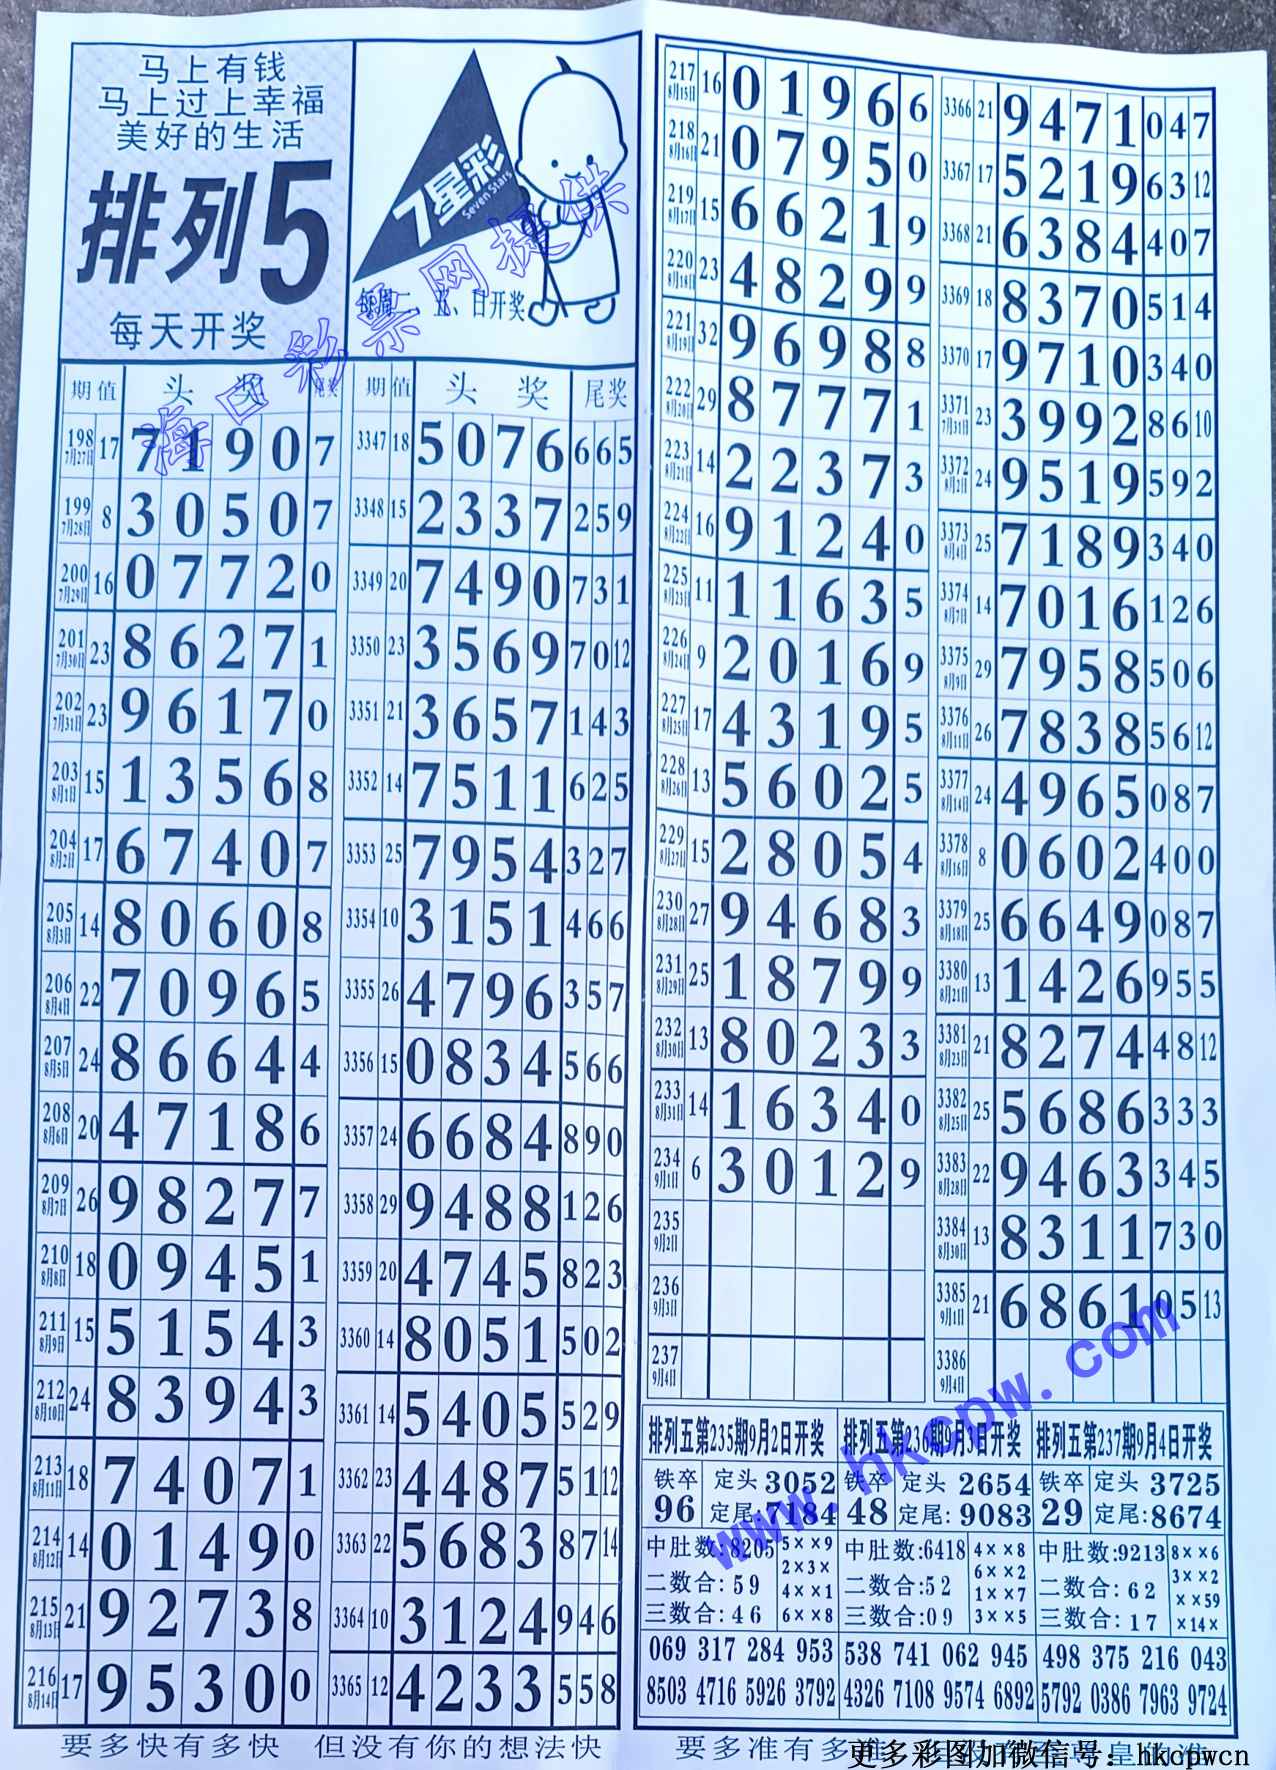 马上有钱
马上过上幸福
美好的生活
排列5
每天开奖
7星彩
Seven Stars
每周二 五、日开奖
海口彩票网提供
期 值 头 奖 尾奖
198 7月27日 17 7 1 9 0 7
199 7月28日 8 3 0 5 0 7
200 7月29日 16 0 7 7 2 0
201 7月30日 23 8 6 2 7 1
202 7月31日 23 9 6 1 7 0
203 8月1日 15 1 3 5 6 8
204 8月2日 17 6 7 4 0 7
205 8月3日 14 8 0 6 0 8
206 8月4日 22 7 0 9 6 5
207 8月5日 24 8 6 6 4 4
208 8月6日 20 4 7 1 8 6
209 8月7日 26 9 8 2 7 7
210 8月8日 18 0 9 4 5 1
211 8月9日 15 5 1 5 4 3
212 8月10日 24 8 3 9 4 3
213 8月11日 18 7 4 0 7 1
214 8月12日 14 0 1 4 9 0
215 8月13日 21 9 2 7 3 8
216 8月14日 17 9 5 3 0 0
期 值 头 奖 尾奖
3347 18 5 0 7 6 6 6 5
3348 15 2 3 3 7 2 5 9
3349 20 7 4 9 0 7 3 1
3350 23 3 5 6 9 7 0 12
3351 21 3 6 5 7 1 4 3
3352 14 7 5 1 1 6 2 5
3353 25 7 9 5 4 3 2 7
3354 10 3 1 5 1 4 6 6
3355 26 4 7 9 6 3 5 7
3356 15 0 8 3 4 5 6 6
3357 24 6 6 8 4 8 9 0
3358 29 9 4 8 8 1 2 6
3359 20 4 7 4 5 8 2 3
3360 14 8 0 5 1 5 0 2
3361 14 5 4 0 5 5 2 9
3362 23 4 4 8 7 5 1 12
3363 22 5 6 8 3 8 7 14
3364 10 3 1 2 4 9 4 6
3365 12 4 2 3 3 5 5 8
217 8月15日 16 0 1 9 6 6
218 8月16日 21 0 7 9 5 0
219 8月17日 15 6 6 2 1 9
220 8月18日 23 4 8 2 9 9
221 8月19日 32 9 6 9 8 8
222 8月20日 29 8 7 7 7 1
223 8月21日 14 2 2 3 7 3
224 8月22日 16 9 1 2 4 0
225 8月23日 11 1 1 6 3 5
226 8月24日 9 2 0 1 6 9
227 8月25日 17 4 3 1 9 5
228 8月26日 13 5 6 0 2 5
229 8月27日 15 2 8 0 5 4
230 8月28日 27 9 4 6 8 3
231 8月29日 25 1 8 7 9 9
232 8月30日 13 8 0 2 3 3
233 8月31日 14 1 6 3 4 0
234 9月1日 6 3 0 1 2 9
235 9月2日
236 9月3日
237 9月4日
3366 21 9 4 7 1 0 4 7
3367 17 5 2 1 9 6 3 12
3368 21 6 3 8 4 4 0 7
3369 18 8 3 7 0 5 1 4
3370 17 9 7 1 0 3 4 0
3371 7月31日 23 3 9 9 2 8 6 10
3372 8月2日 24 9 5 1 9 5 9 2
3373 8月4日 25 7 1 8 9 3 4 0
3374 8月7日 14 7 0 1 6 1 2 6
3375 8月9日 29 7 9 5 8 5 0 6
3376 8月11日 26 7 8 3 8 5 6 12
3377 8月14日 24 4 9 6 5 0 8 7
3378 8月16日 8 0 6 0 2 4 0 0
3379 8月18日 25 6 6 4 9 0 8 7
3380 8月21日 13 1 4 2 6 9 5 5
3381 8月23日 21 8 2 7 4 4 8 12
3382 8月25日 25 5 6 8 6 3 3 3
3383 8月28日 22 9 4 6 3 3 4 5
3384 8月30日 13 8 3 1 1 7 3 0
3385 9月1日 21 6 8 6 1 0 5 13
3386 9月4日
排列五第235期9月2日开奖
铁卒 96 定头 3052
定尾:7184
中肚数:8205
二数合:59
三数合:46
5××9
2×3×
4××1
6××8
069 317 284 953
8503 4716 5926 3792
排列五第236期9月3日开奖
铁卒 48 定头 2654
定尾:9083
中肚数:6418
二数合:52
三数合:09
4××8
6××2
1××7
3××5
538 741 062 945
4326 7108 9574 6892
排列五第237期9月4日开奖
铁卒 29 定头 3725
定尾:8674
中肚数:9213
二数合:62
三数合:17
8××6
3××2
××59
×14×
498 375 216 043
5792 0386 7963 9724
www.hkcpw.com
要多快有多快 但没有你的想法快
要多准有多准
更多彩图加微信号：hkcpwcn